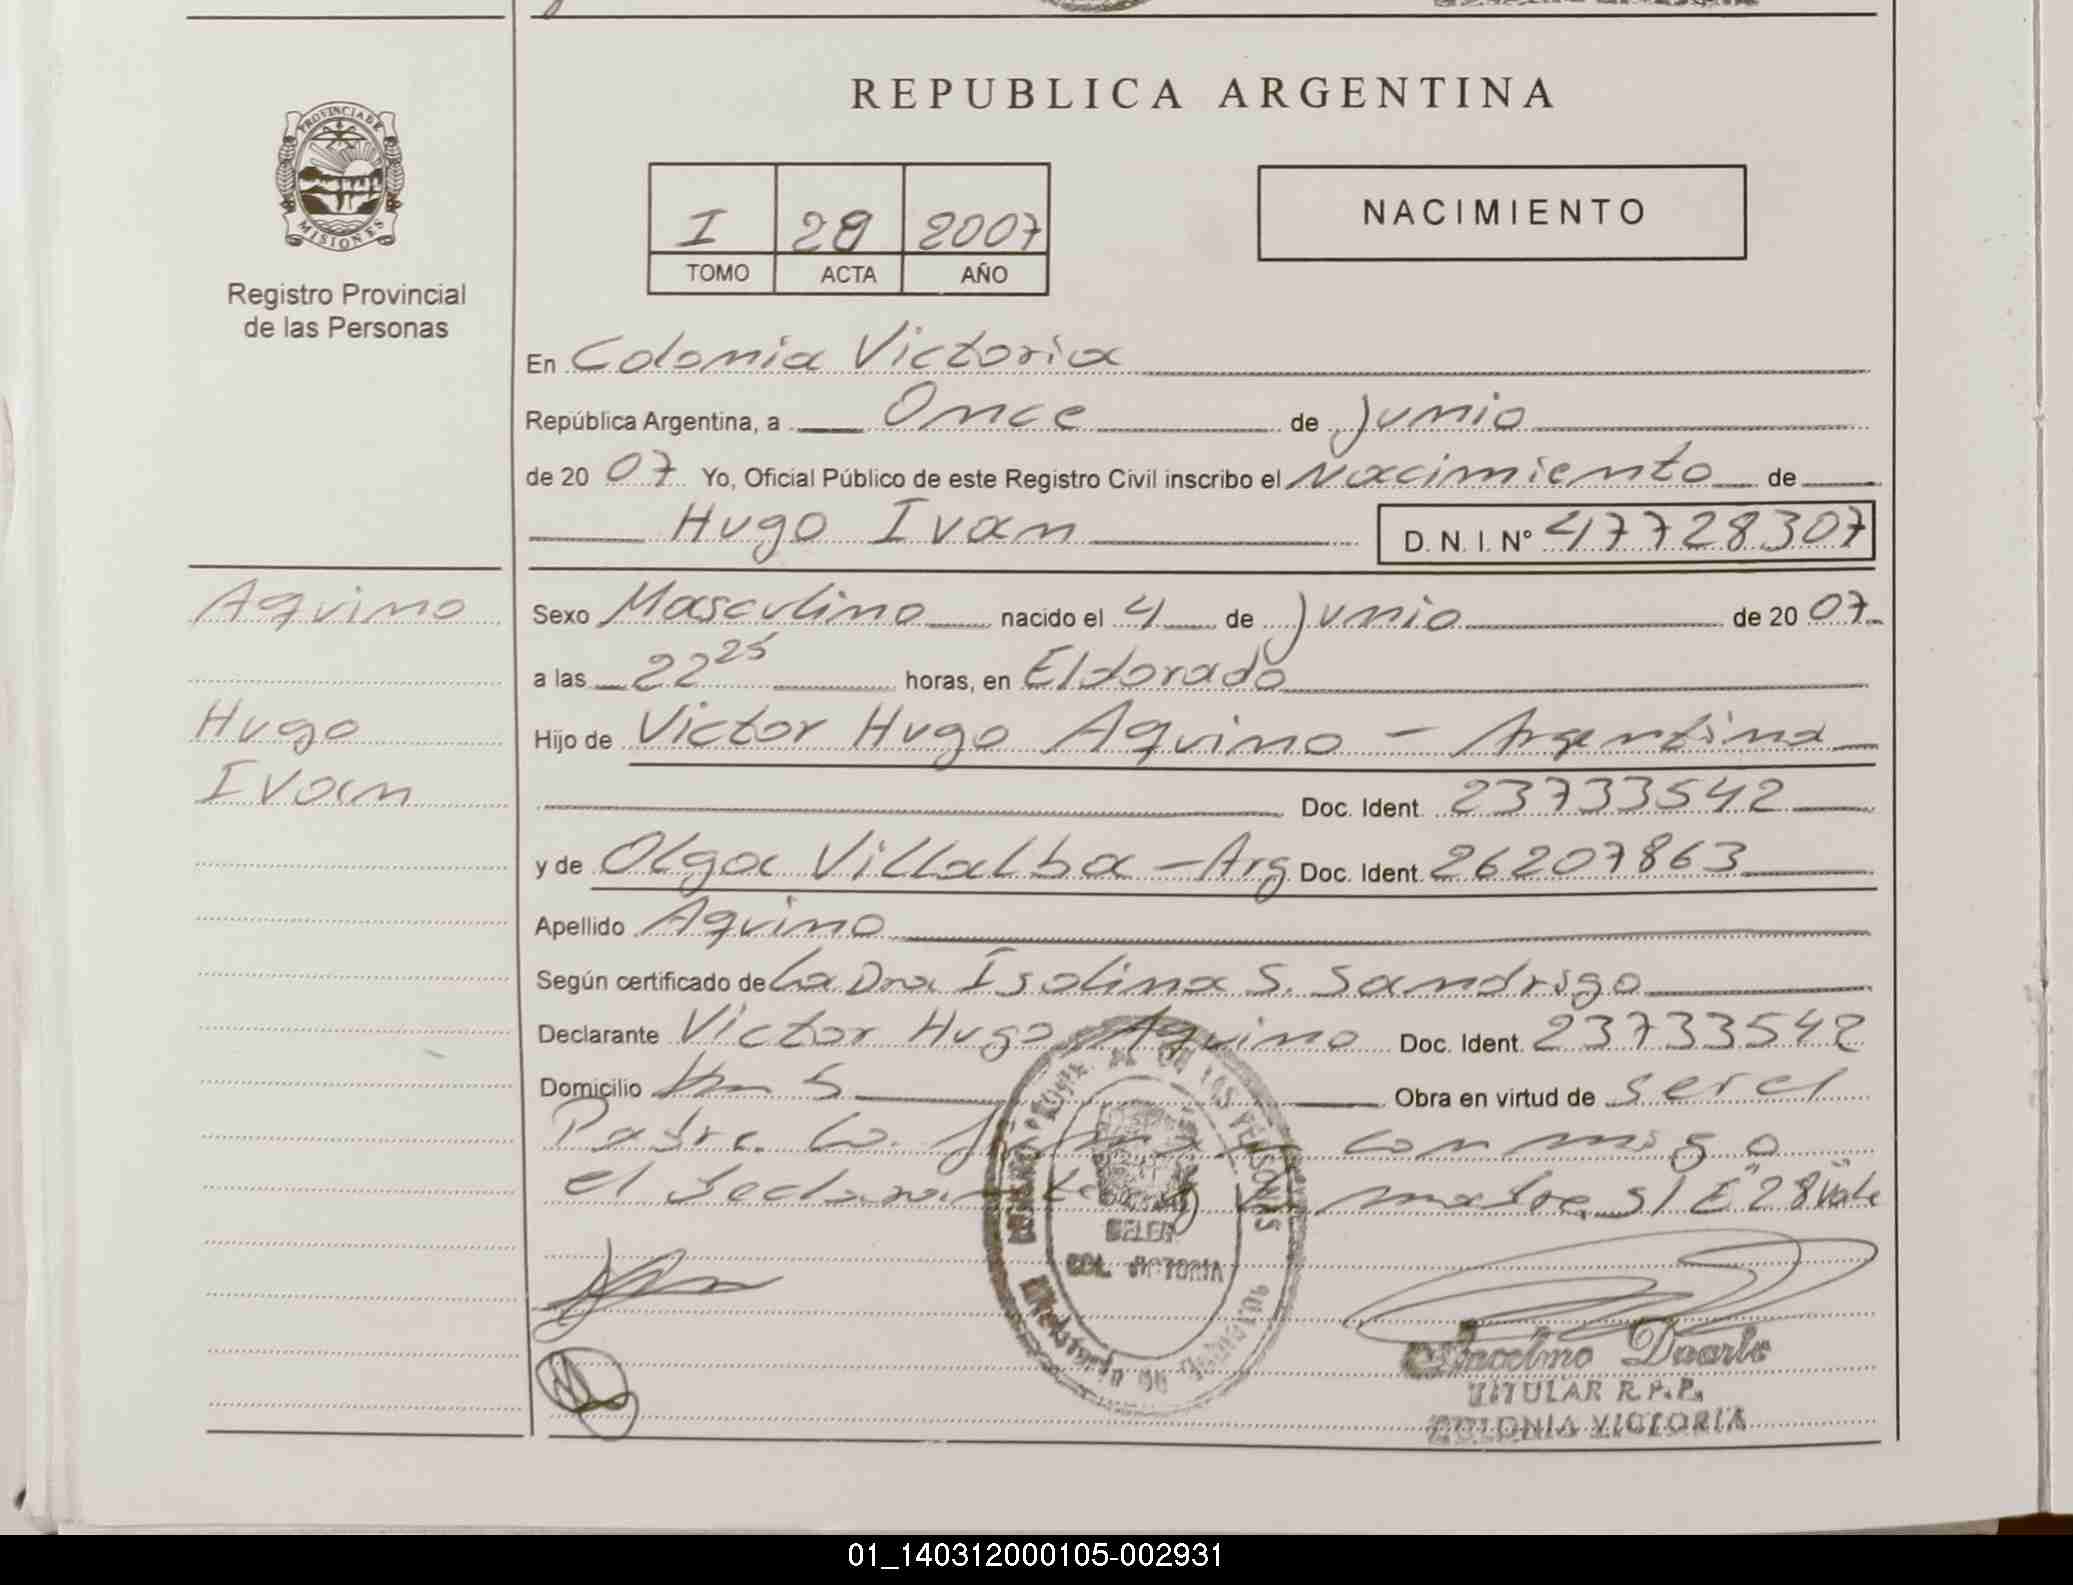 REPUBLICA ARGENTINA
PROVINCIA DE MISIONES
Registro Provincial
de las Personas
I 28 2007
TOMO ACTA AÑO
NACIMIENTO
En Colonia Victoria
República Argentina, a Once de Junio
de 20 07 Yo, Oficial Público de este Registro Civil inscribo el Nacimiento de
Hugo Ivan D. N. I. N° 47728307
Aquino
Hugo
Ivan
Sexo Masculino nacido el 4 de Junio de 20 07
a las 22 25 horas, en Eldorado
Hijo de Victor Hugo Aquino - Argentina
Doc. Ident. 23733542
y de Olga Villalba - Arg Doc. Ident. 26207863
Apellido Aquino
Según certificado de La Dra Isolina S. Sandrigo
Declarante Victor Hugo Aquino Doc. Ident. 23733542
Domicilio Km 5 Obra en virtud de ser el
Padre. Lo. firma conmigo
el declarante y la madre S/E "28" Vale
COL. VICTORIA
Anselmo Duarte
TITULAR R.P.P.
COLONIA VICTORIA
01_140312000105-002931